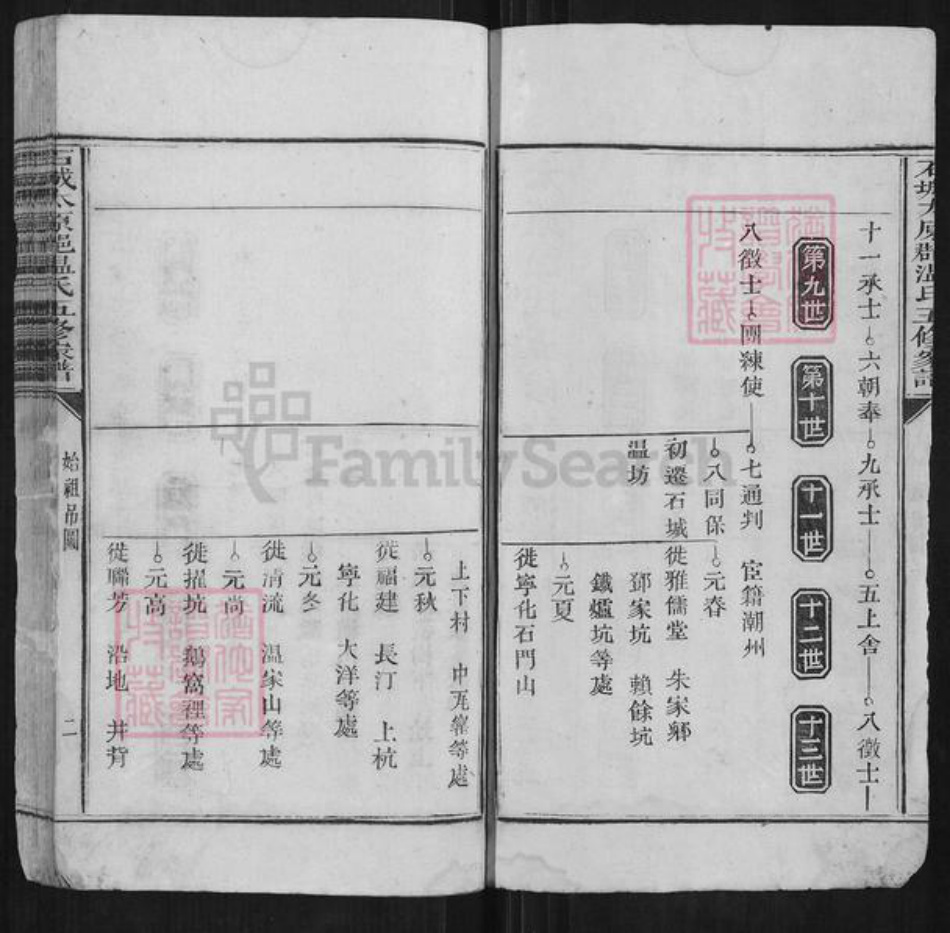 石城太原郡温氏五修家譜
十一承士 六朝奉 九承士 五上舍 八徵士
第九世 第十世 十一世 十二世 十三世
八徵士 團練使 七通判 宦籍潮州
八同保 元春
初遷石城 徙雅儒堂 朱家鄉
温坊 鄧家坑 賴餘坑
鐵爐坑等處
元夏
徙寧化石門山
上下村 中瓦窰等處
元秋
徙福建 長汀 上杭
寧化 大洋等處
元冬
徙清流 温家山等處
元尚
徙擢坑 鵝窩裡等處
元高
徙聯芳 沿地 井背
石城太原郡温氏五修家譜
始祖吊圖
二
FamilySearch